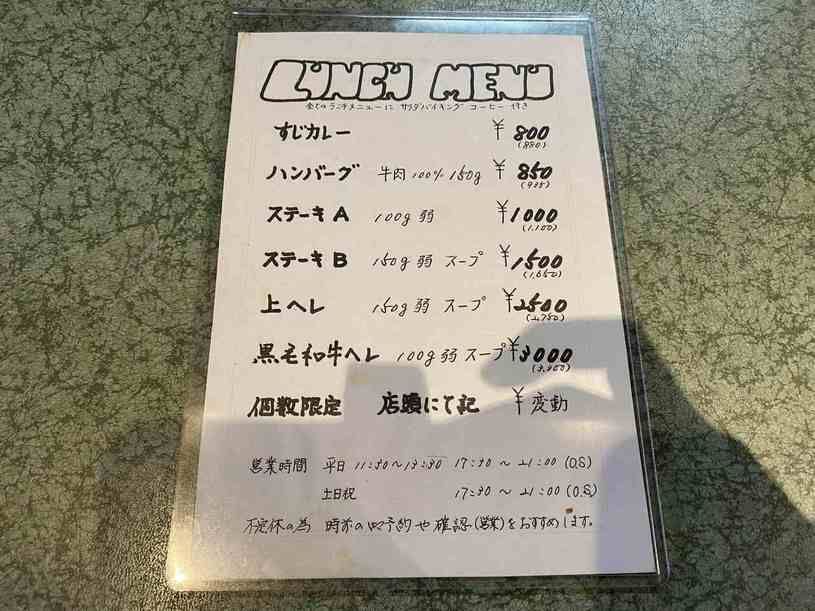 LUNCH MENU
全てのランチメニューに サラダバイキング コーヒー付き
すじカレー ¥800
(880)
ハンバーグ 牛肉100% 150g ¥850
(935)
ステーキA 100g弱 ¥1000
(1,100)
ステーキB 150g弱 スープ ¥1500
(1,650)
上ヘレ 150g弱 スープ ¥2500
(2,750)
黒毛和牛ヘレ 100g弱 スープ ¥3000
(3,300)
個数限定 店頭にて記 ¥変動
営業時間 平日 11:30〜13:30 17:30〜21:00(O.S)
土日祝 17:30〜21:00(O.S)
不定休の為 予約や確認(営業)をおすすめします。